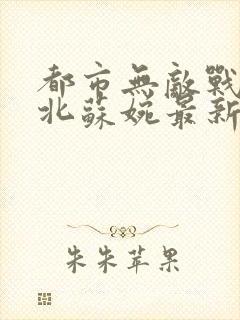 都市無敵戰
北蘇婉最新
朱朱苹果